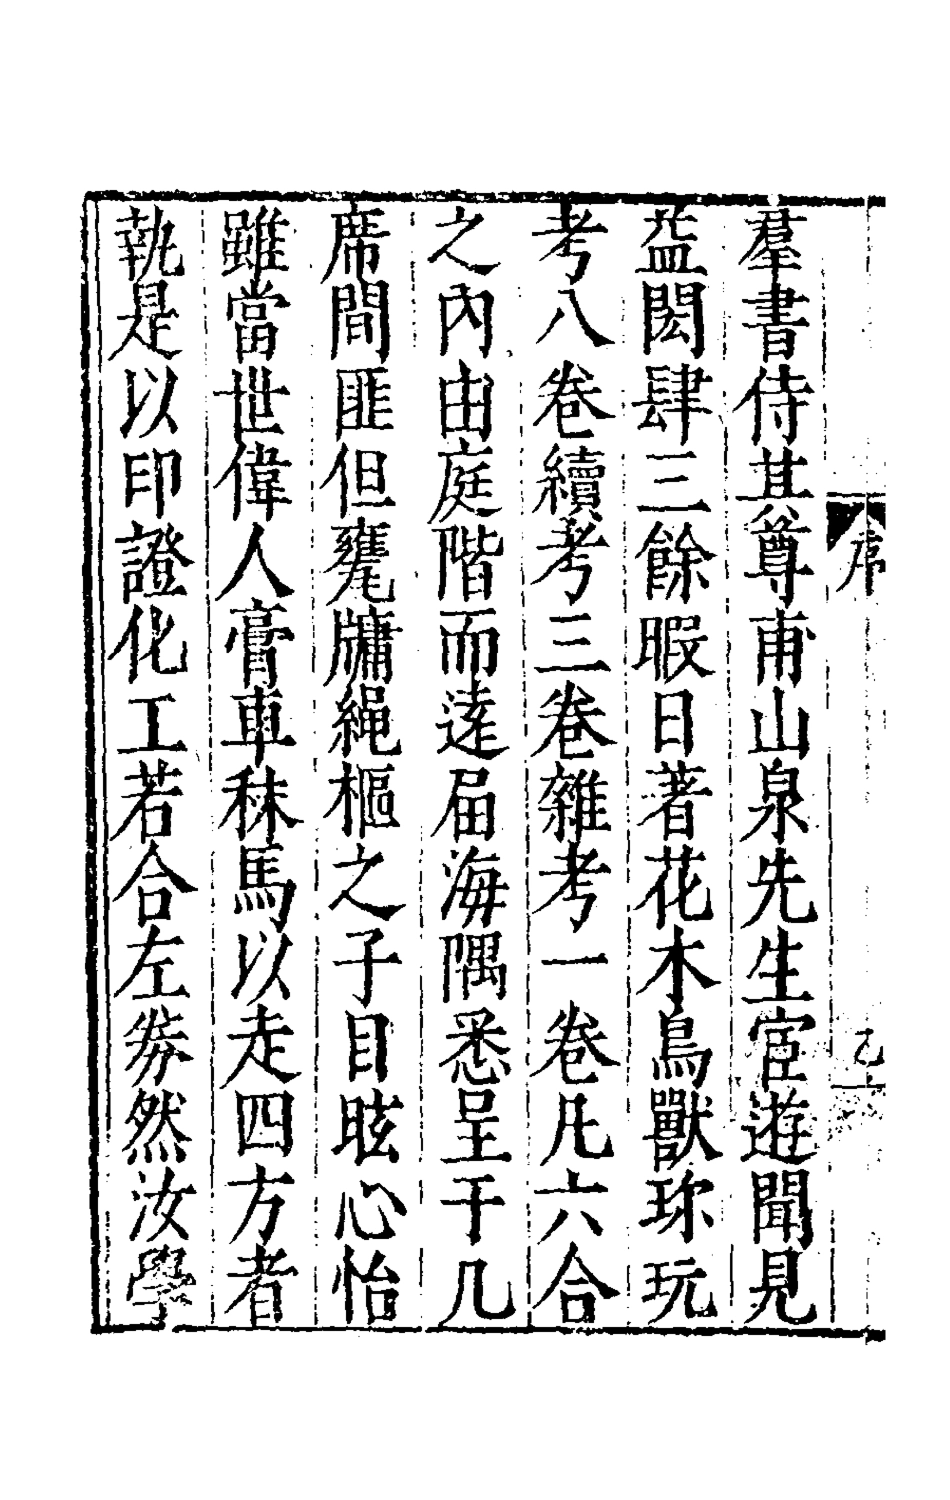 序
乙
羣書侍其尊甫山泉先生宦遊聞見
益閎肆三餘暇日著花木鳥獸珎玩
考八卷續考三卷雜考一卷凡六合
之內由庭階而逺屆海隅悉呈于几
席間匪但甕牖繩樞之子目眩心怡
雖當世偉人膏車秣馬以走四方者
執是以印證化工若合左劵然汝學